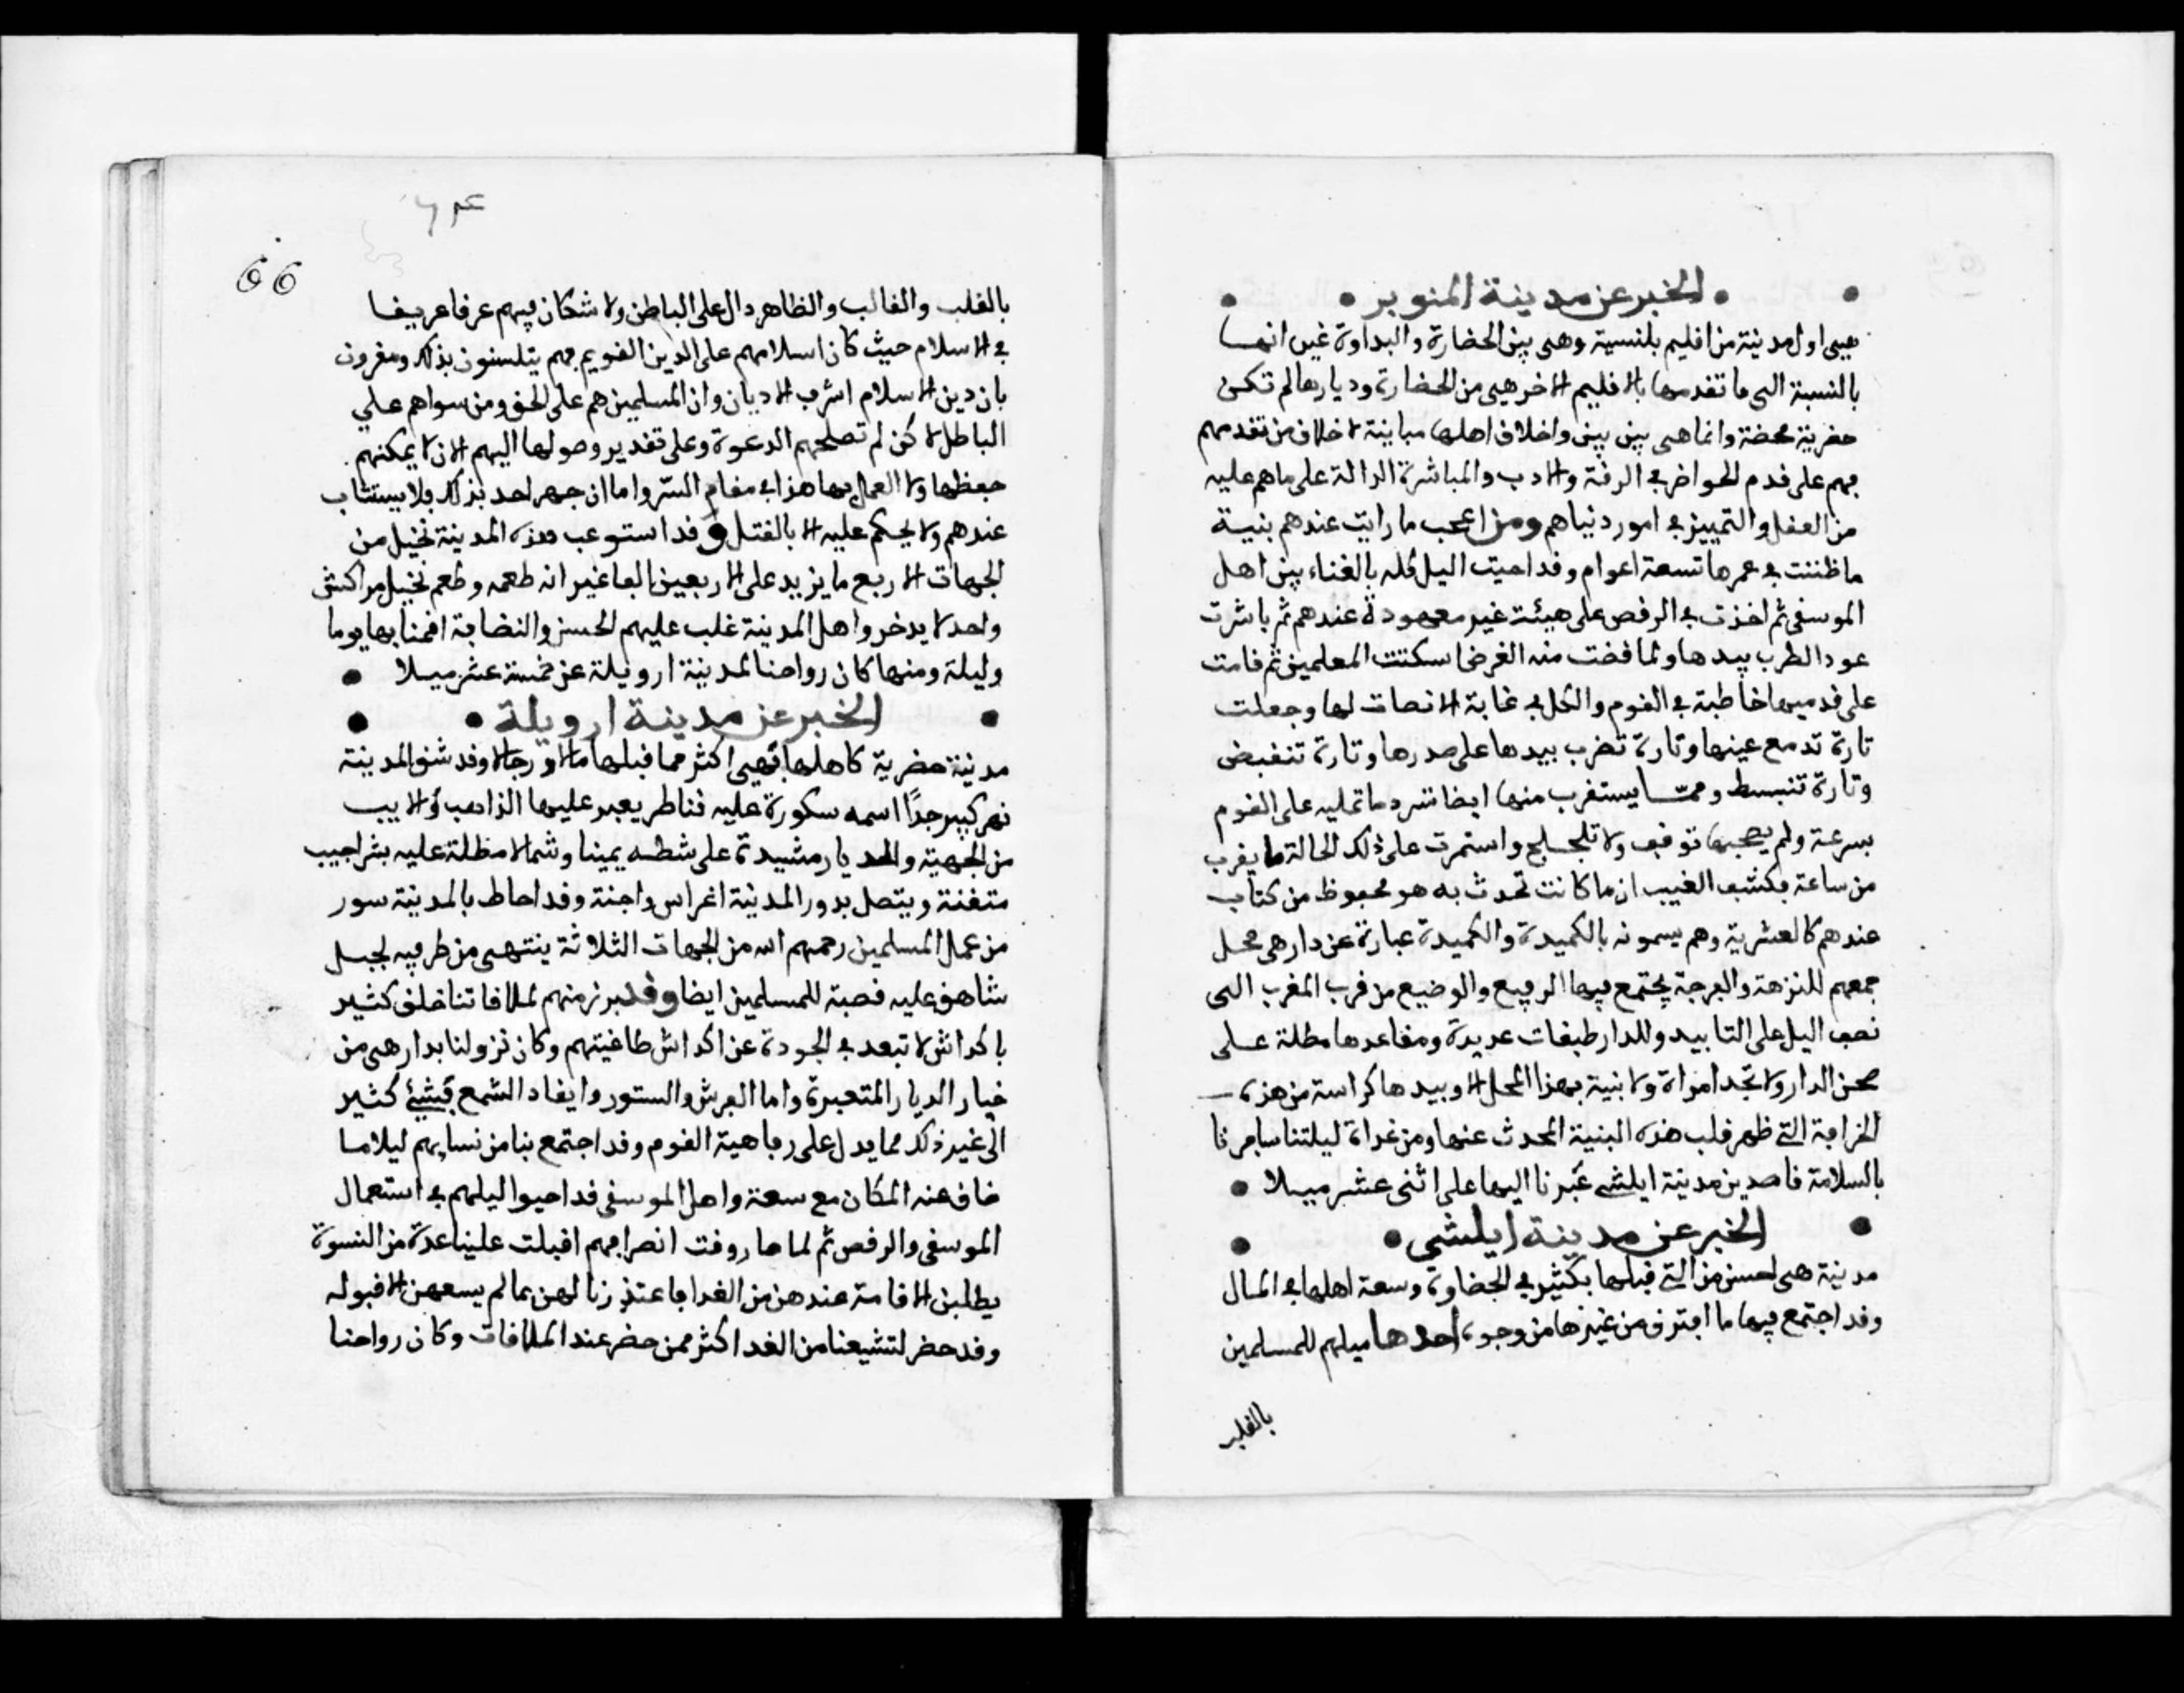 الخبر عن مدينة المنوبر
هي اول مدينة من اقليم بلنسية وهى بين الحضارة والبداوة غير انها
بالنسبة الى ما تقدمها بالاقليم الاخر هي من الحضارة وديارها لم تكن
حضرية محضة وانما هى بين بين واخلاق اهلها مباينة لاخلاق من تقدمهم
فهم على قدم الحواضر في الرقة والادب والمباشرة الدالة على ما هم عليه
من العقل والتمييز في امور دنياهم ومن اعجب ما رايت عندهم بنية
ما ظننت في عمرها تسعة اعوام وقد احيت اليل كله بالغناء بين اهل
الموسقى ثم اخذت في الرقص على هيئة غير معهودة عندهم ثم باشرت
عود الطرب بيدها ولما قضت منه الغرض اسكتت المعلمين ثم قامت
على قدميها خاطبة في القوم والكل في غاية الانصات لها وجعلت
تارة تدمع عينها وتارة تضرب بيدها على صدرها وتارة تنقبض
وتارة تنبسط ومما يستغرب منها ايضا سرد ما تمليه على القوم
بسرعة ولم يصحبها توقف ولا تلجلج واستمرت على ذلك الحالة ما يقرب
من ساعة فكشف الغيب ان ما كانت تحدث به هو محفوظ من كتاب
عندهم كالعشرية وهم يسمونه بالكميدة والكميدة عبارة عن دار هى محل
جمعهم للنزهة والفرجة يجتمع فيها الرفيع والوضيع من قرب المغرب الى
نصف اليل على التابيد وللدار طبقات عديدة ومقاعدها مطلة على
صحن الدار ولا تجد امراة ولا بنية بهذا المحل الا وبيدها كراسة من هذه
الخرافة التي ظهر قلب هذه البنية المحدث عنها ومن غداة ليلتنا سافرنا
بالسلامة قاصدين مدينة ايلشي عبرنا اليها على اثنى عشر ميلا
الخبر عن مدينة ايلشي
مدينة هى احسن من التي قبلها بكثير في الحضاوة وسعة اهلها في المال
وقد اجتمع فيها ما افترق من غيرها من وجوه احدها ميلهم للمسلمين
بالقلب
66
بالقلب والقالب والظاهر دال على الباطن ولا شك ان فيهم عرقا عريقا
في الاسلام حيث كان اسلامهم على الدين القويم فهم يتلسنون بذلك ومقرون
بان دين الاسلام اشرف الاديان وان المسلمين هم على الحق ومن سواهم على
الباطل لاكن لم تصلحهم الدعوة وعلى تقدير وصولها اليهم الان لا يمكنهم
حفظها ولا العمل بها هذا في مقام السر واما ان جهر احد بذلك فلا يستثاب
عندهم ولا يحكم عليه الا بالقتل وقد استوعب هذه المدينة نخيل من
الجهات الاربع ما يزيد على الاربعين الفا غير انه طعمه وطعم نخيل مراكش
واحد لا يدخر واهل المدينة غلب عليهم الحسن والنضافة اقمنا بها يوما
وليلة ومنها كان رواحنا لمدينة ارويلة عن خمسة عشر ميلا
الخبر عن مدينة ارويلة
مدينة حضرية كاهلها فهي اكثر مما قبلها مالا ورجالا وقد شق المدينة
نهر كبير جدا اسمه سكورة عليه قناطر يعبر عليها الذاهب والايب
من الجهية والديار مشيدة على شطه يمينا وشمالا مظلة عليه بشراجيب
متقنة ويتصل بدور المدينة اغراس واجنة وقد احاط بالمدينة سور
من عمل المسلمين رحمهم الله من الجهات الثلاثة ينتهى من طرفيه لجبل
شاهق عليه قصبة للمسلمين ايضا وقد برز منهم لملاقاتنا خلق كثير
باكداش لا تبعد في الجودة عن اكداش طاغيتهم وكان نزولنا بدار هى من
خيار الديار المتعبرة واما الفرش والستور وايقاد الشمع فشيئ كثير
الى غير ذلك مما يدل على رفاهية القوم وقد اجتمع بنا من نسايهم ليلا ما
ضاق عنه المكان مع سعة واهل الموسقى قد احيوا ليلهم في استعمال
الموسقى والرقص ثم لما حار وقت انصرافهم اقبلت علينا عدة من النسوة
يطلبن الاقامة عندهن من الغد فاعتذرنا لهن بما لم يسعهن الا قبوله
وقد حضر لتشيعنا من الغد اكثر ممن حضر عند الملاقات وكان رواحنا